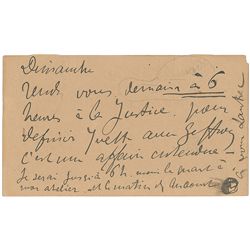 Dimanche
rendez vous demain à 6
heures à la Justice pour
définir Yvette avec Geffroy
c'est une affaire entendue –
Je serai jusqu'à 6 h. moins le quart à
mon atelier, et le matin
à vous